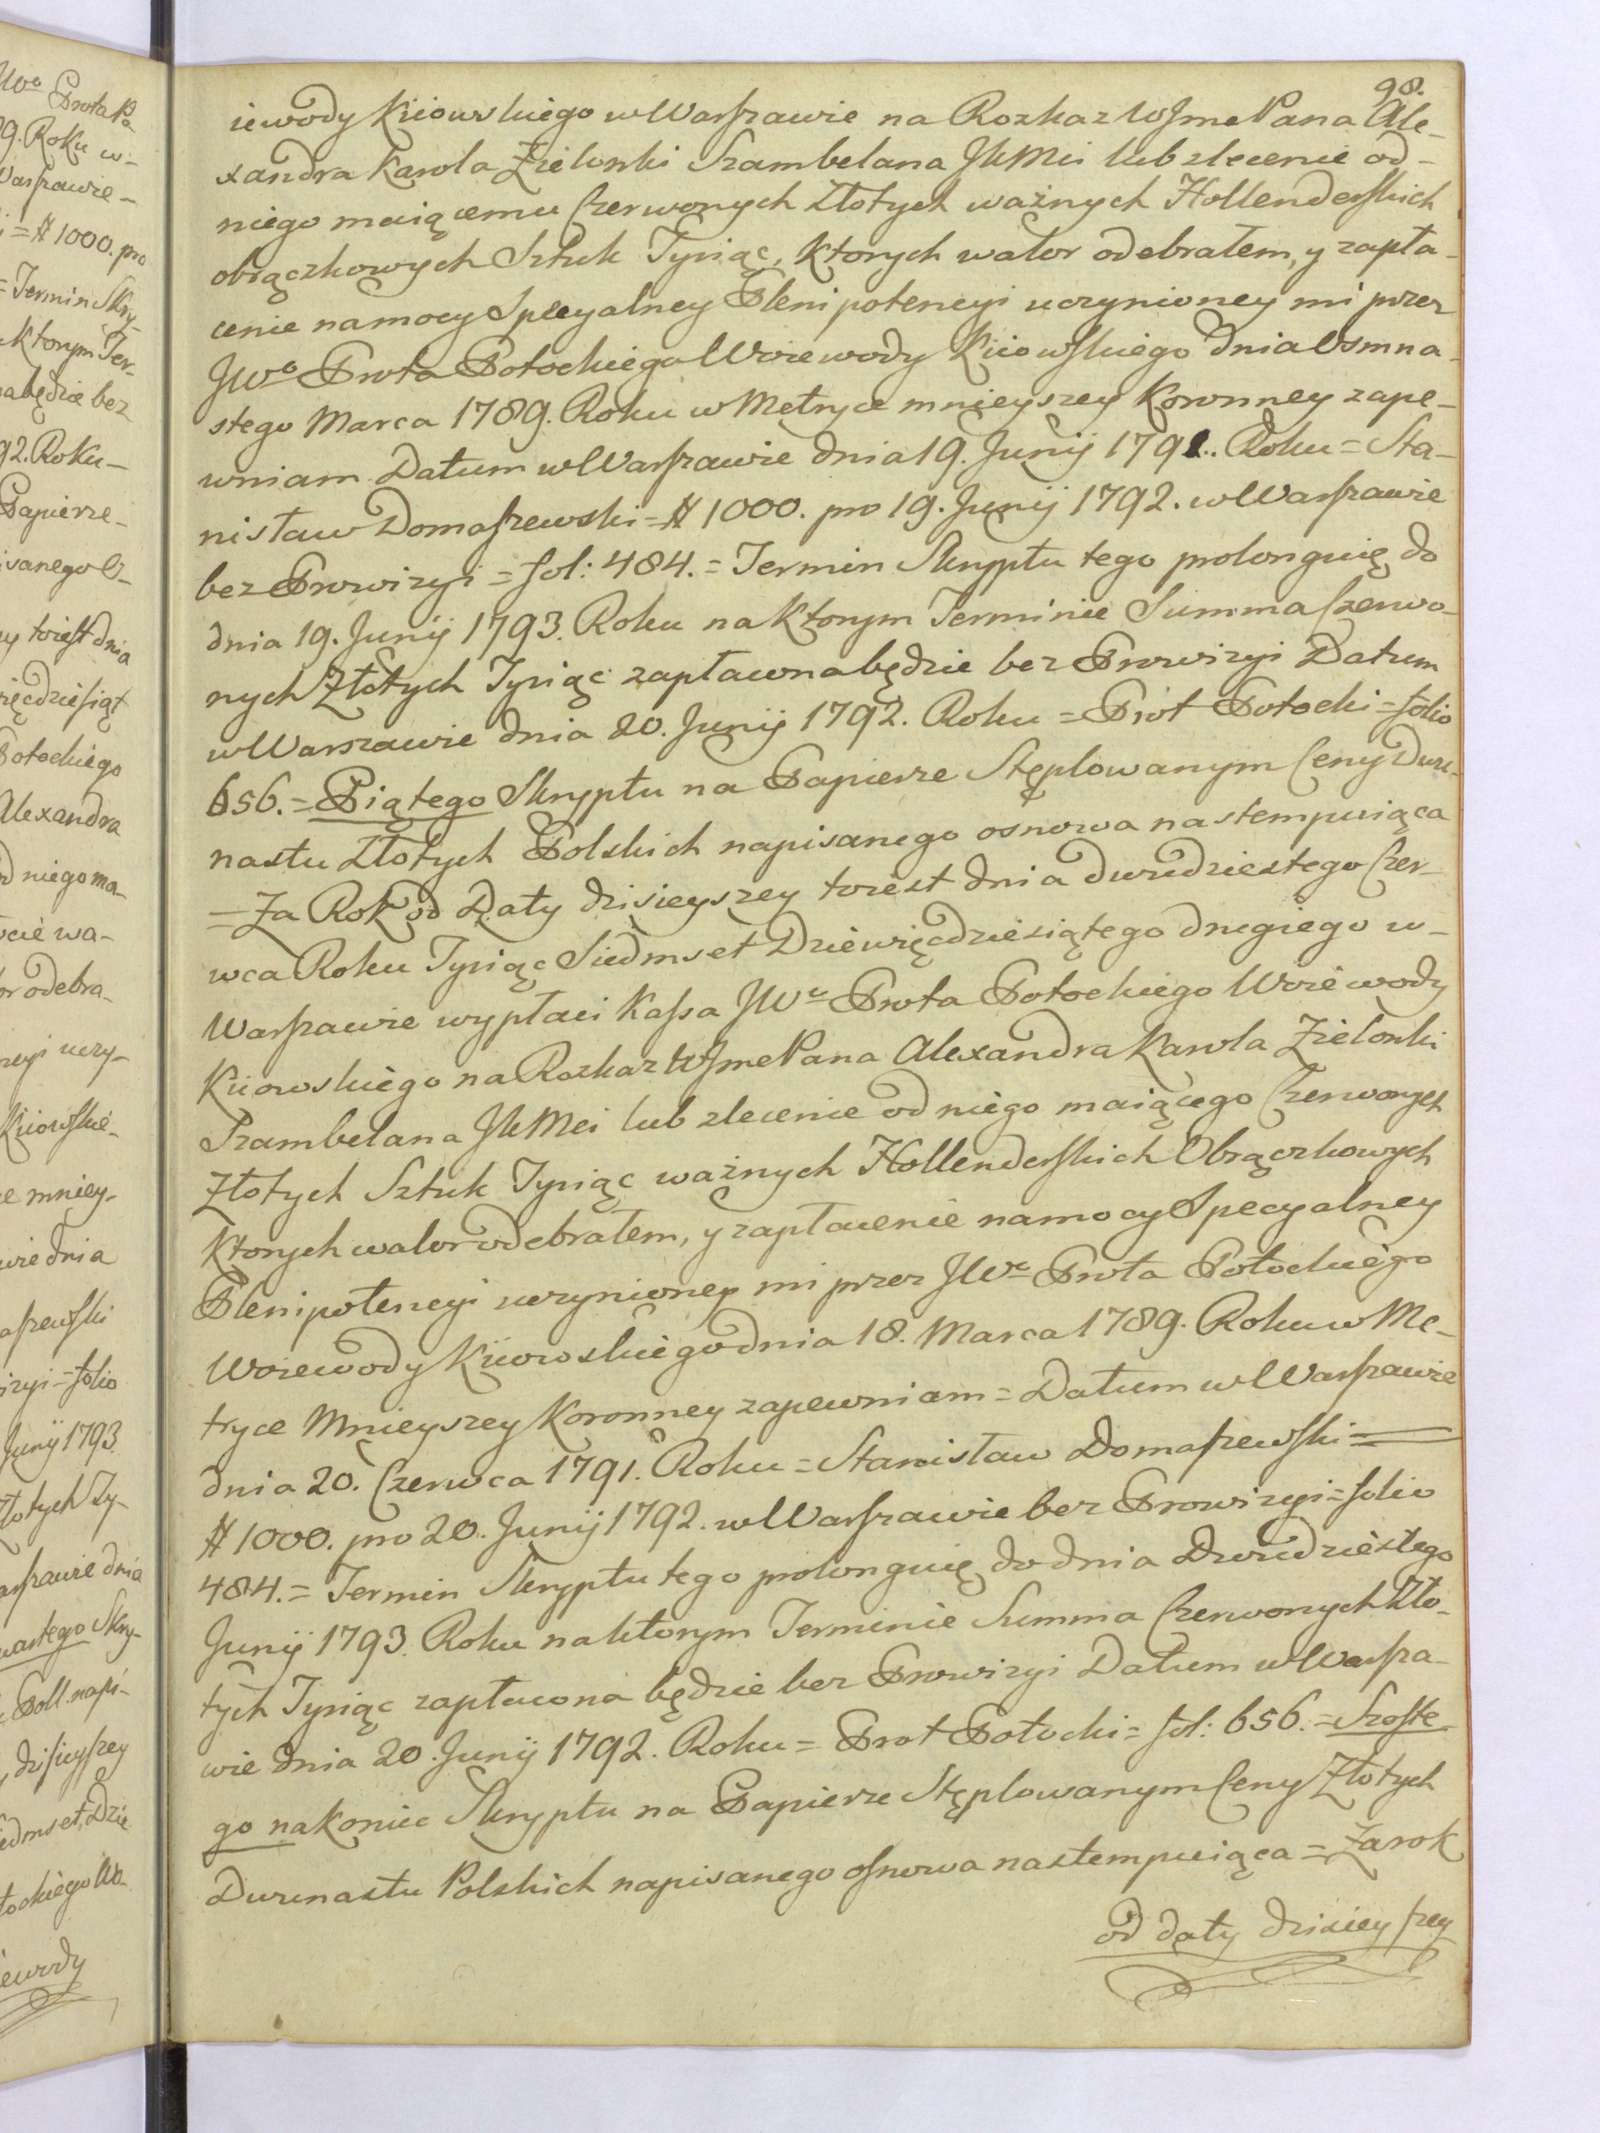 98.
iewody Kiiowskiego w Warszawie na Rozkaz WJme Pana Ale-
xandra Karola Zielonki Szambelana JKMci lub zlecenie od-
niego maiącemu Czerwonych Złotych ważnych Hollenderskich
obrączkowych Sztuk Tysiąc, ktorych walor odebrałem, y zapła-
cenie na mocy Specyalney Plenipotencyi uczynioney mi przez
JWo Prota Potockiego Woiewody Kiiowskiego dnia Osmna-
stego Marca 1789. Roku w Metryce mnieyszey Koronney zape-
wniam Datum w Warszawie dnia 19. Junij 1791. Roku = Sta-
nisław Domaszewski = # 1000. pro 19. Junij 1792. w Warszawie
bez Prowizyi = fol: 484. = Termin Skryptu tego prolonguię do
dnia 19. Junij 1793. Roku na ktorym Terminie Summa Czerwo-
nych Złotych Tysiąc zapłacona będzie bez Prowizyi Datum
w Warszawie dnia 20. Junij 1792. Roku = Prot Potocki = folio
656. = Piątego Skryptu na Papierze Stęplowanym Ceny Dwu-
nastu Złotych Polskich napisanego osnowa nastempuiąca
= Za Rok od Daty dzisieyszey toiest dnia dwudziestego Czer-
wca Roku Tysiąc Siedmset Dziewięcdziesiątego drugiego w-
Warszawie wypłaci Kassa JWo Prota Potockiego Woiewody
Kiiowskiego na Rozkaz WJme Pana Alexandra Karola Zielonki
Szambelana JKMci lub zlecenie od niego maiącego Czerwonych
Złotych Sztuk Tysiąc ważnych Hollenderskich Obrączkowych
ktorych walor odebrałem, y zapłacenie na mocy Specyalney
Plenipotencyi uczynioney mi przez JWo Prota Potockiego
Woiewody Kiiowskiego dnia 18. Marca 1789. Roku w Me-
tryce Mnieyszey Koronney zapewniam = Datum w Warszawie
dnia 20. Czerwca 1791. Roku = Stanisław Domaszewski =
# 1000. pro 20. Junij 1792. w Warszawie bez Prowizyi = folio
484. = Termin Skryptu tego prolonguię do dnia Dwudziestego
Junij 1793. Roku na ktorym Terminie Summa Czerwonych Zło-
tych Tysiąc zapłacona będzie bez Prowizyi Datum w Warsza-
wie dnia 20. Junij 1792. Roku = Prot Potocki = fol: 656. = Szoste-
go nakoniec Skryptu na Papierze Stęplowanym Ceny Złotych
Dwunastu Polskich napisanego osnowa nastempuiąca = Za rok
od daty dzisieyszey